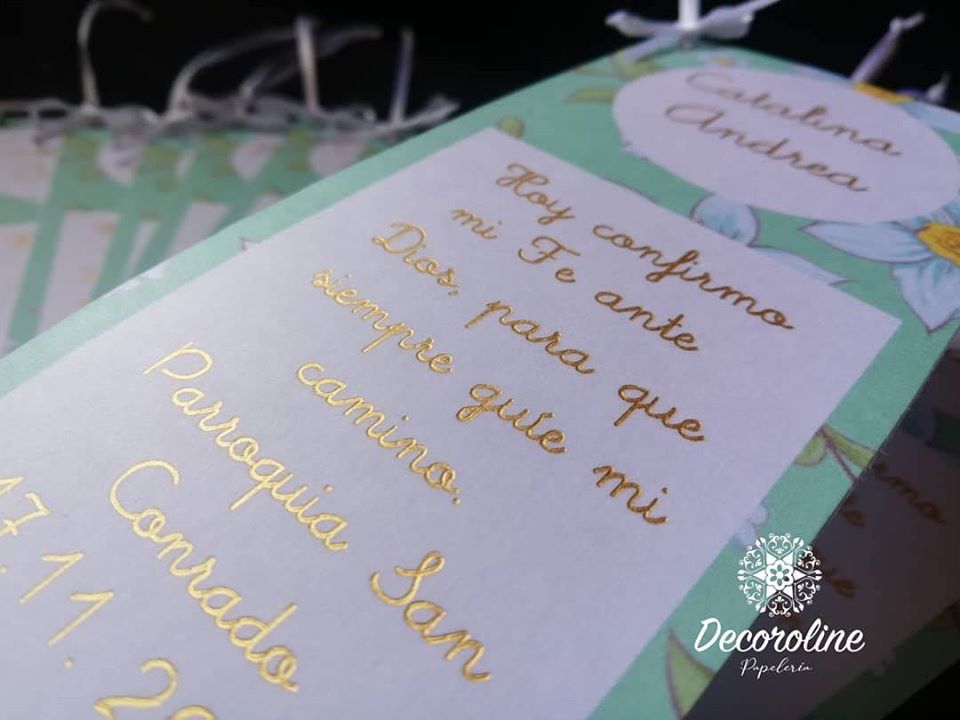 Catalina
Andrea
Hoy confirmo
mi Fe ante
Dios, para que
siempre guíe mi
camino.
Parroquia San
Conrado
17.11.20
Decoroline
Papelería